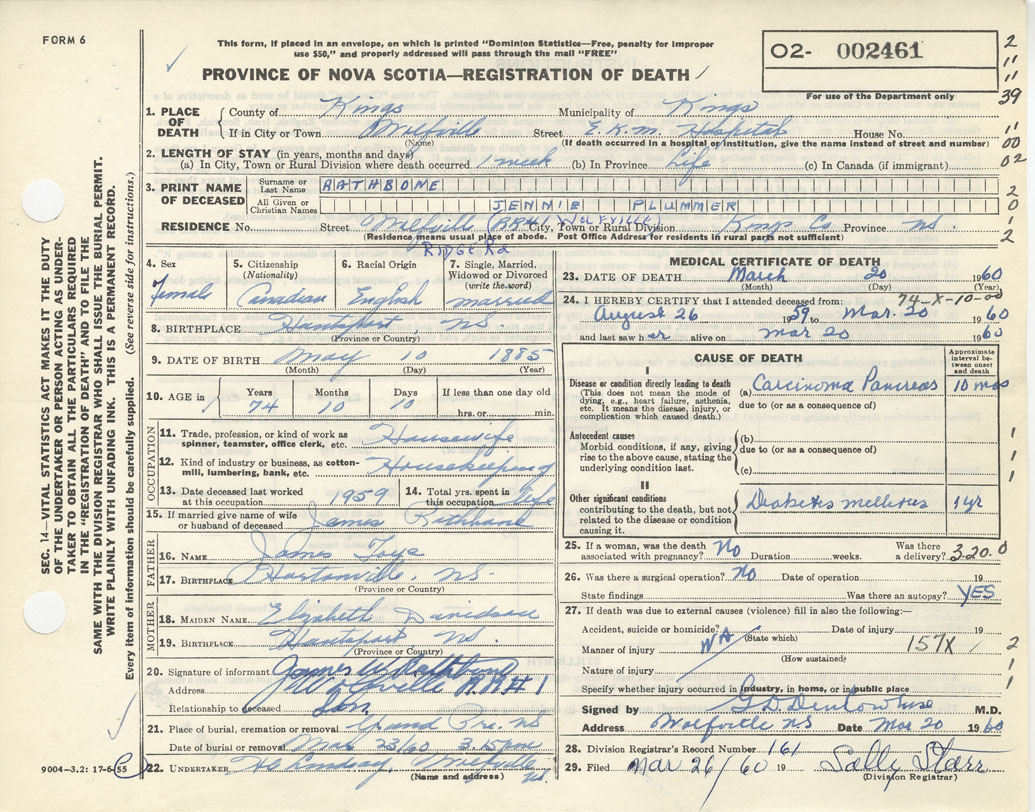 FORM 6
This form, if placed in an envelope, on which is printed "Dominion Statistics—Free, penalty for improper
use $50," and properly addressed will pass through the mail "FREE"
PROVINCE OF NOVA SCOTIA—REGISTRATION OF DEATH
O2- 002461
For use of the Department only
2
11
11
39
11
00
02
2
0
1
2
SEC. 14—VITAL STATISTICS ACT MAKES IT THE DUTY
OF THE UNDERTAKER OR PERSON ACTING AS UNDER-
TAKER TO OBTAIN ALL THE PARTICULARS REQUIRED
IN THE "REGISTRATION OF DEATH" AND TO FILE THE
SAME WITH THE DIVISION REGISTRAR WHO SHALL ISSUE THE BURIAL PERMIT.
WRITE PLAINLY WITH UNFADING INK. THIS IS A PERMANENT RECORD.
Every item of information should be carefully supplied. (See reverse side for instructions.)
1. PLACE OF DEATH County of Kings Municipality of Kings
If in City or Town Wolfville Street E.K.M. Hospital House No.
(Name) (If death occurred in a hospital or institution, give the name instead of street and number)
2. LENGTH OF STAY (in years, months and days)
(a) In City, Town or Rural Division where death occurred 1 week (b) In Province Life (c) In Canada (if immigrant)
3. PRINT NAME OF DECEASED Surname or Last Name RATHBONE
All Given or Christian Names JENNIE PLUMMER
RESIDENCE No. Street Wolfville (RR#1 WOLFVILLE) City, Town or Rural Division Kings Co Province NS.
(Residence means usual place of abode. Post Office Address for residents in rural parts not sufficient)
RIDGE Rd
4. Sex female
5. Citizenship (Nationality) Canadian
6. Racial Origin English
7. Single, Married, Widowed or Divorced (write the word) married
8. BIRTHPLACE Hantsport, NS.
(Province or Country)
9. DATE OF BIRTH May 10 1885
(Month) (Day) (Year)
10. AGE in Years 74 Months 10 Days 10 If less than one day old hrs. or min.
OCCUPATION
11. Trade, profession, or kind of work as spinner, teamster, office clerk, etc. Housewife
12. Kind of industry or business, as cotton-mill, lumbering, bank, etc. Housekeeping
13. Date deceased last worked at this occupation 1959 14. Total yrs. spent in this occupation Life
15. If married give name of wife or husband of deceased James Rathbone
FATHER
16. NAME James
17. BIRTHPLACE NS.
(Province or Country)
MOTHER
18. MAIDEN NAME Elizabeth Davidson
19. BIRTHPLACE Hantsport NS.
(Province or Country)
20. Signature of informant James W Rathbone
Address Wolfville R.R #1
Relationship to deceased Son
21. Place of burial, cremation or removal Grand Pre. NS
Date of burial or removal Mar 23/60 3.15pm
22. UNDERTAKER Lindsay, Wolfville NS
(Name and address)
9004-3.2: 17-6-55
MEDICAL CERTIFICATE OF DEATH
23. DATE OF DEATH March 20 1960
(Month) (Day) (Year)
74-X-10-00
24. I HEREBY CERTIFY that I attended deceased from:
August 26 1959 to Mar. 20 1960
and last saw her alive on Mar 20 1960
CAUSE OF DEATH
Approximate interval between onset and death
I
Disease or condition directly leading to death (a) Carcinoma Pancreas 10 mos
(This does not mean the mode of dying, e.g., heart failure, asthenia, etc. It means the disease, injury, or complication which caused death.)
due to (or as a consequence of)
Antecedent causes
Morbid conditions, if any, giving rise to the above cause, stating the underlying condition last.
(b)
due to (or as a consequence of)
(c)
II
Other significant conditions contributing to the death, but not related to the disease or condition causing it.
Diabetes mellitus 1 yr
1
1
1
1
25. If a woman, was the death associated with pregnancy? No Duration weeks. Was there a delivery? 3.20.0
26. Was there a surgical operation? No Date of operation 19
State findings Was there an autopsy? YES
27. If death was due to external causes (violence) fill in also the following:—
Accident, suicide or homicide? Date of injury 19
(State which)
Manner of injury NA 157X
(How sustained)
Nature of injury
2
1
1
Specify whether injury occurred in industry, in home, or in public place
Signed by M.D.
Address Wolfville NS Date Mar 20 1960
28. Division Registrar's Record Number 161
29. Filed Mar 26/60 19 Sally Starr
(Division Registrar)